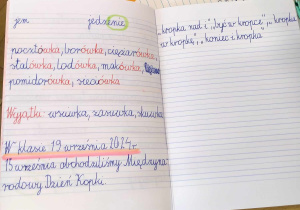 jem jedzenie
pocztówka, borówka, ciężarówka,
stalówka, lodówka, makówka,
pomidorówka, sieciówka
Wyjątki: wsuwka, zasuwka, skuwka
W klasie 19 września 2024r.
15 września obchodziliśmy Międzyna-
rodowy Dzień Kropki.
„kropka nad i", „być w kropce", „kropka
w kropkę", „koniec i kropka"